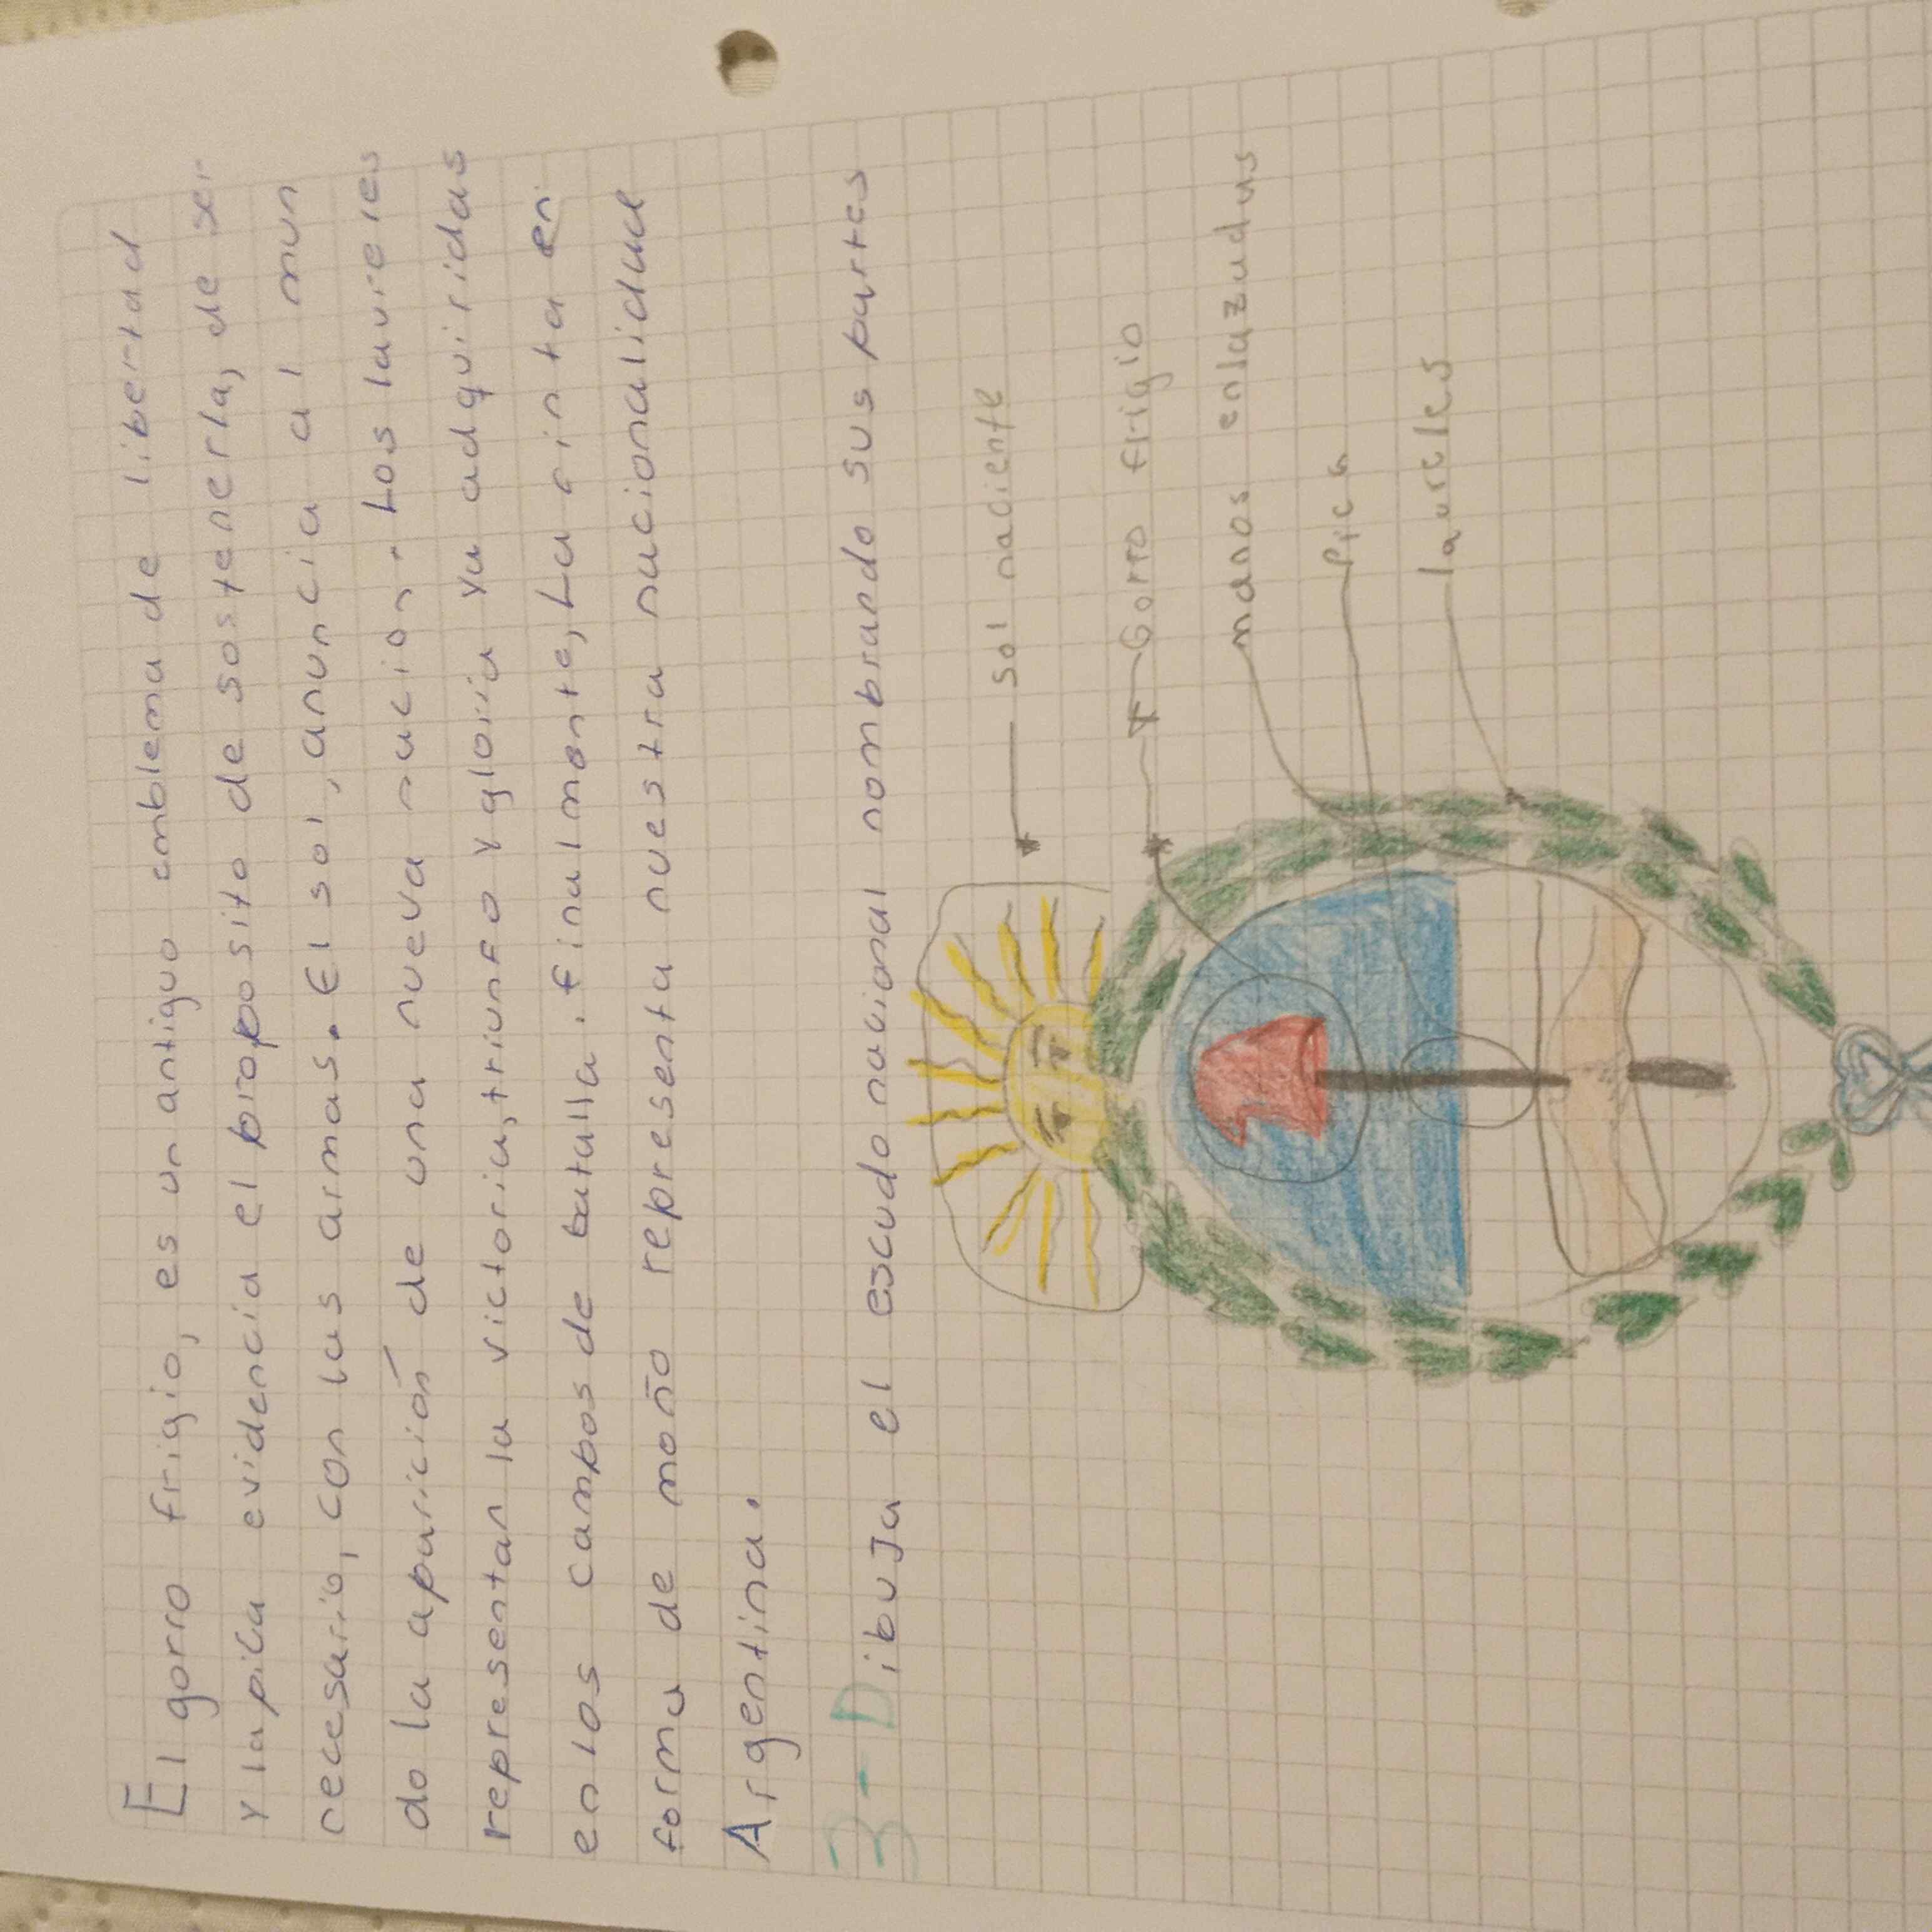 El gorro frigio, es un antiguo emblema de libertad
y la pica evidencia el proposito de sostenerla, de ser
necesario, con las armas. El sol, anuncia al mun
do la aparición de una nueva nacion. Los laureles
representan la victoria, triunfo y gloria ya adquiridas
en los campos de batalla. finalmente, La cinta en
forma de moño representa nuestra nacionalidad
Argentina.
3- Dibuja el escudo nacional nombrando sus partes
sol naciente
Gorro frigio
manos enlazadas
Pica
laureles